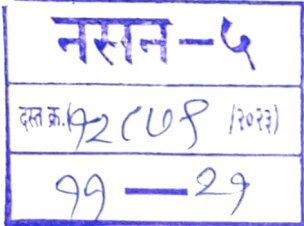 नसन-५
दस्त क्र.(१२८७९ /२०२३)
११ — २१